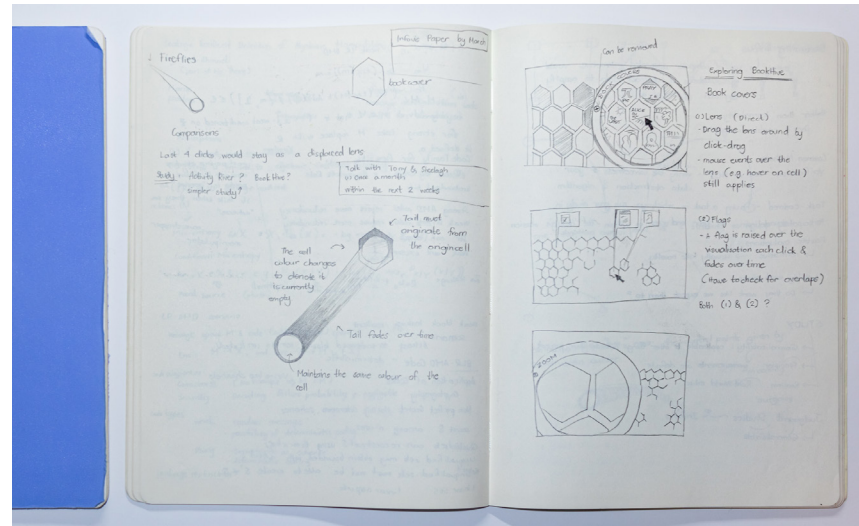 Fireflies
Infinite Paper by
bookcover
Comparisons
Last 4 clicks would stay as a displaced lens
Study - Activity River? BookHive?
simpler study?
Talk with Tony &
in case
within the next 2 weeks
Tail must
originate from
the origin cell
The cell
colour changes
to denote it
is currently
empty
Tail fades over time
Maintains the same colour of the
cell
Can be removed
Exploring BookHive
Book covers
(1) Lens (Direct)
- Drag the lens around by
click-drag
- mouse events over the
lens (e.g. hover on cell)
still applies
BOOK COVERS
(2) Flags
- a flag is raised over the
visualisation each click &
fades over time
(Have to check for overlaps)
Both (1) & (2) ?
ZOOM